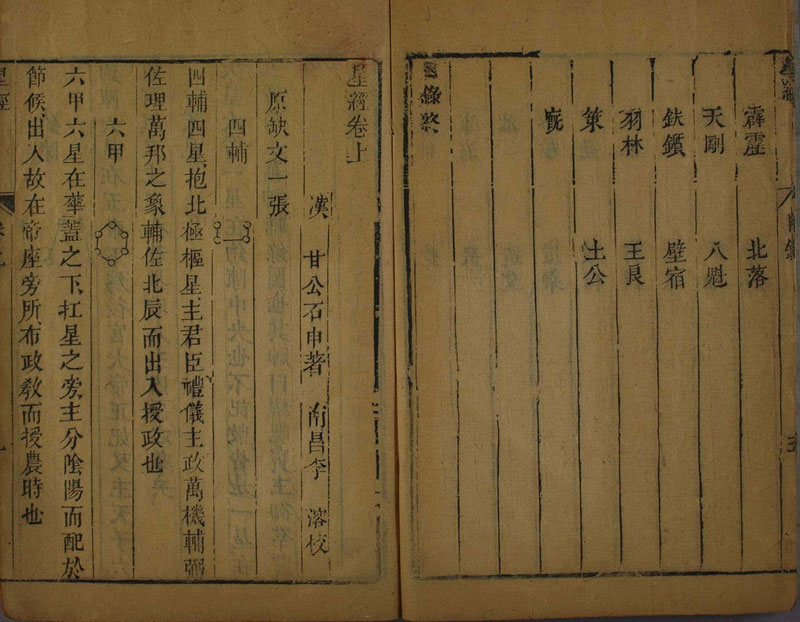 星經
霹靂 北落
天剛 八魁
鈇鑕 壁宿
羽林 王良
策 土公
廐
錄終
星經卷上
漢 甘公石申著 南昌李 校
原缺文一張
四輔
四輔四星抱北極樞星主君臣禮儀主政萬機輔弼
佐理萬邦之象輔佐北辰而出入授政也
六甲
六甲六星在華蓋之下扛星之旁主分陰陽而配於
節候出入故在帝座旁所布政教而授農時也
星經